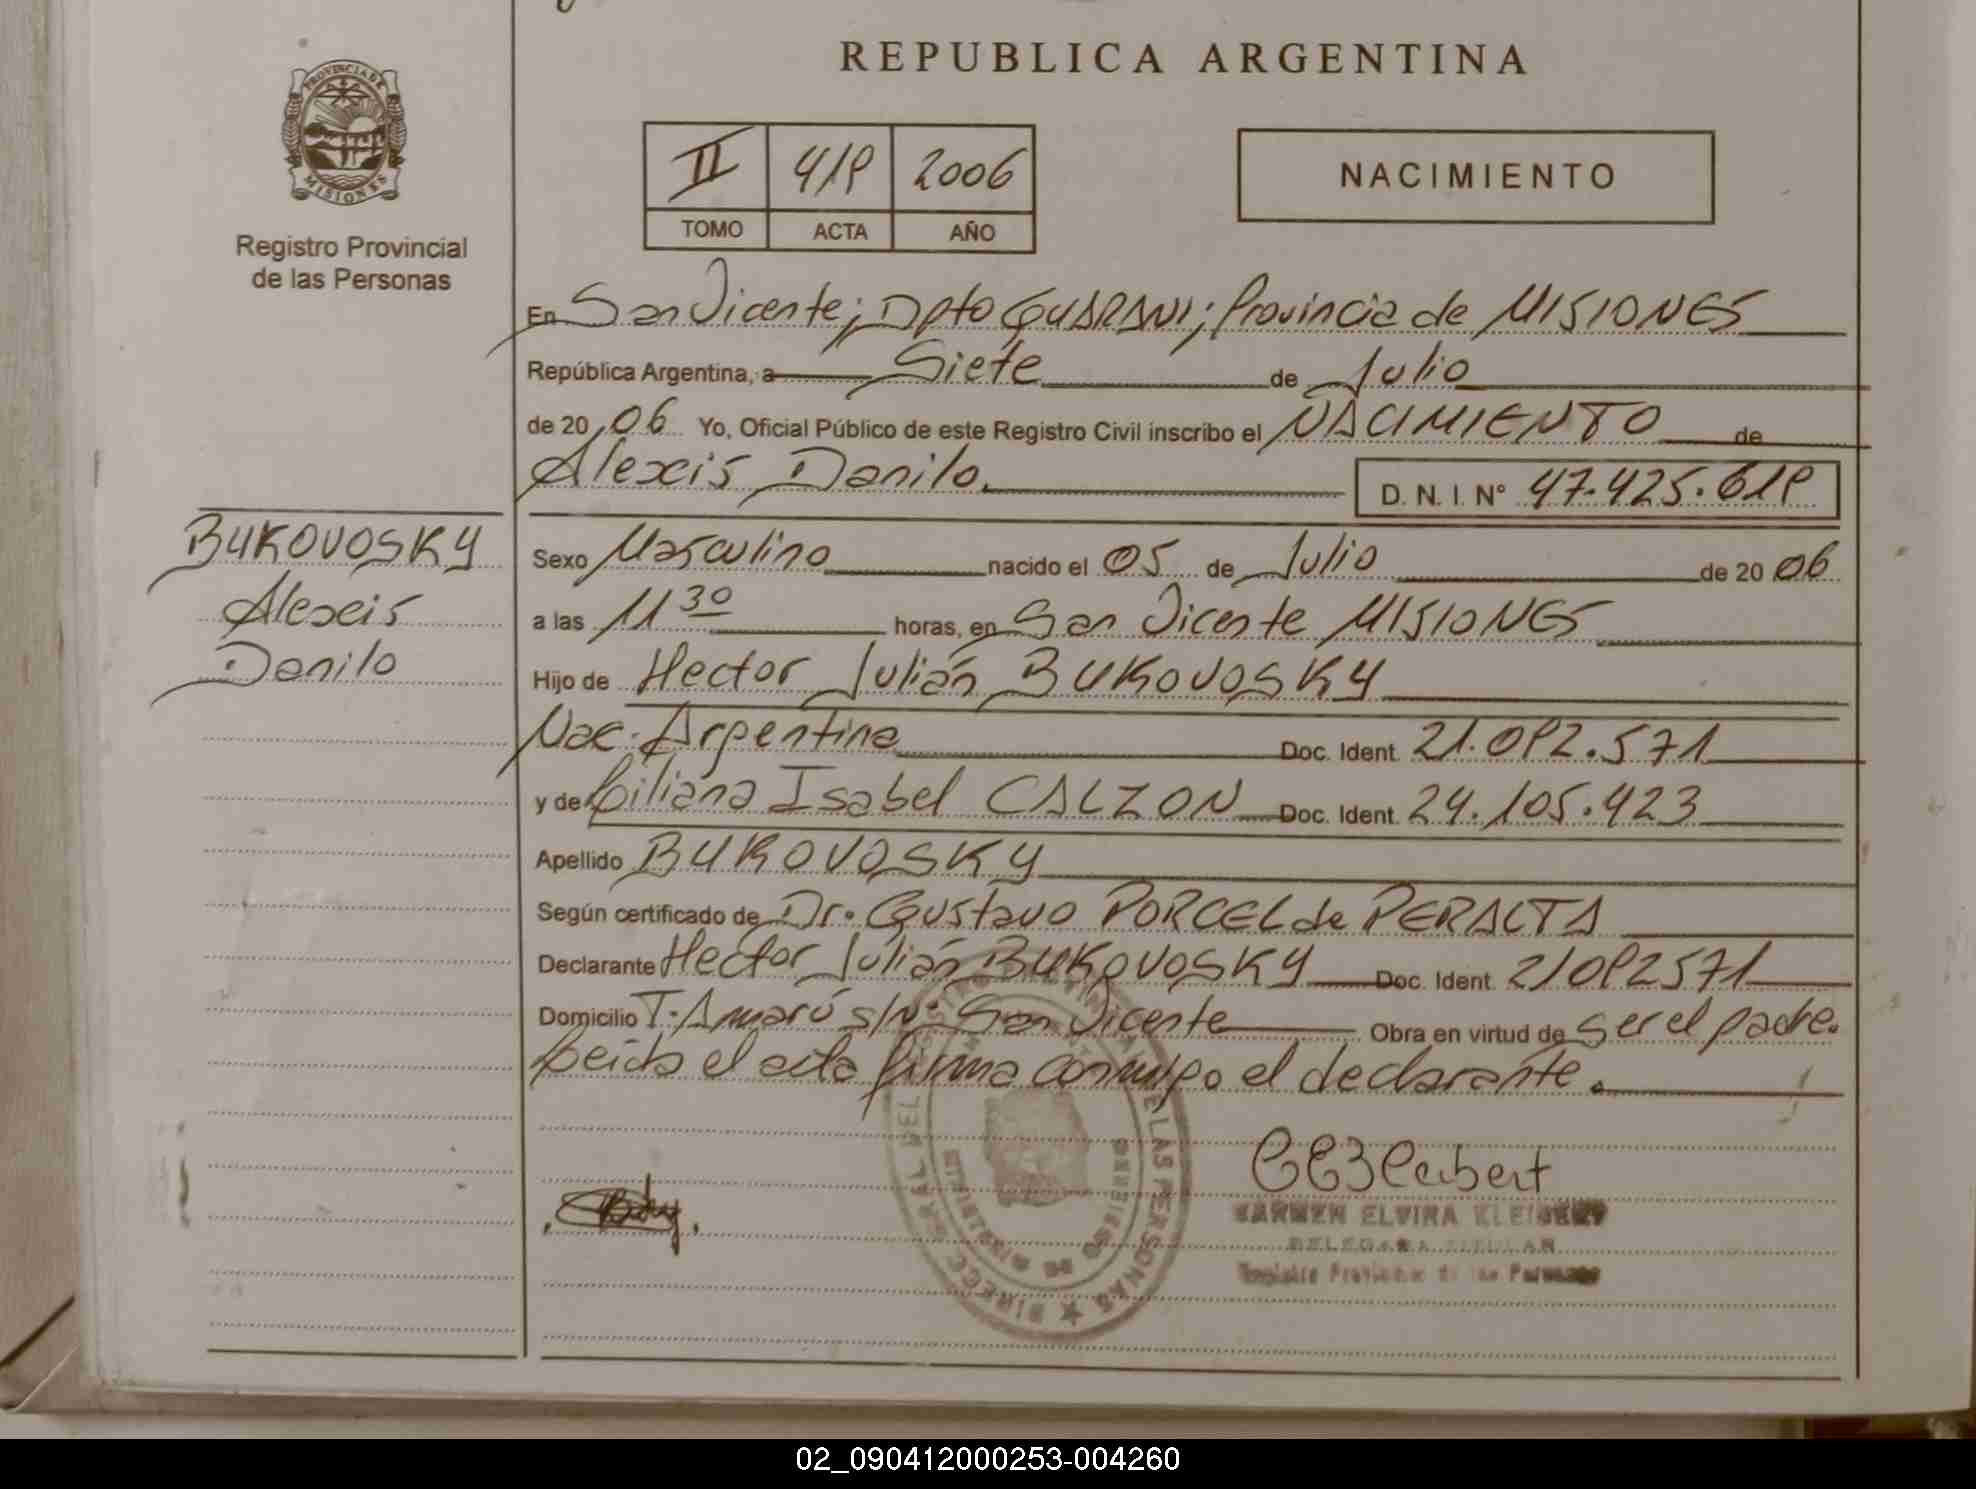 REPUBLICA ARGENTINA
PROVINCIA DE
MISIONES
Registro Provincial
de las Personas
II 418 2006
TOMO ACTA AÑO
NACIMIENTO
En San Vicente; Dpto GUARANI; Provincia de MISIONES
República Argentina, a Siete de Julio
de 20 06 Yo, Oficial Público de este Registro Civil inscribo el NACIMIENTO de
Alexis Danilo. D. N. I. Nº 47.425.618
BUKOVOSKY
Alexis
Danilo
Sexo Masculino nacido el 05 de Julio de 20 06
a las 11 30 horas, en San Vicente MISIONES
Hijo de Hector Julián BUKOVOSKY
Nac. Argentina Doc. Ident. 21.082.571
y de Liliana Isabel CALZON Doc. Ident. 24.105.423
Apellido BUKOVOSKY
Según certificado de Dr. Gustavo PORCEL de PERALTA
Declarante Hector Julián BUKOVOSKY Doc. Ident. 21082571
Domicilio T. Amarú s/Nº San Vicente Obra en virtud de ser el padre.
Leida el acta firma conmigo el declarante.
CARMEN ELVIRA KLEIBERT
DELEGADA TITULAR
Registro Provincial de las Personas
02_090412000253-004260